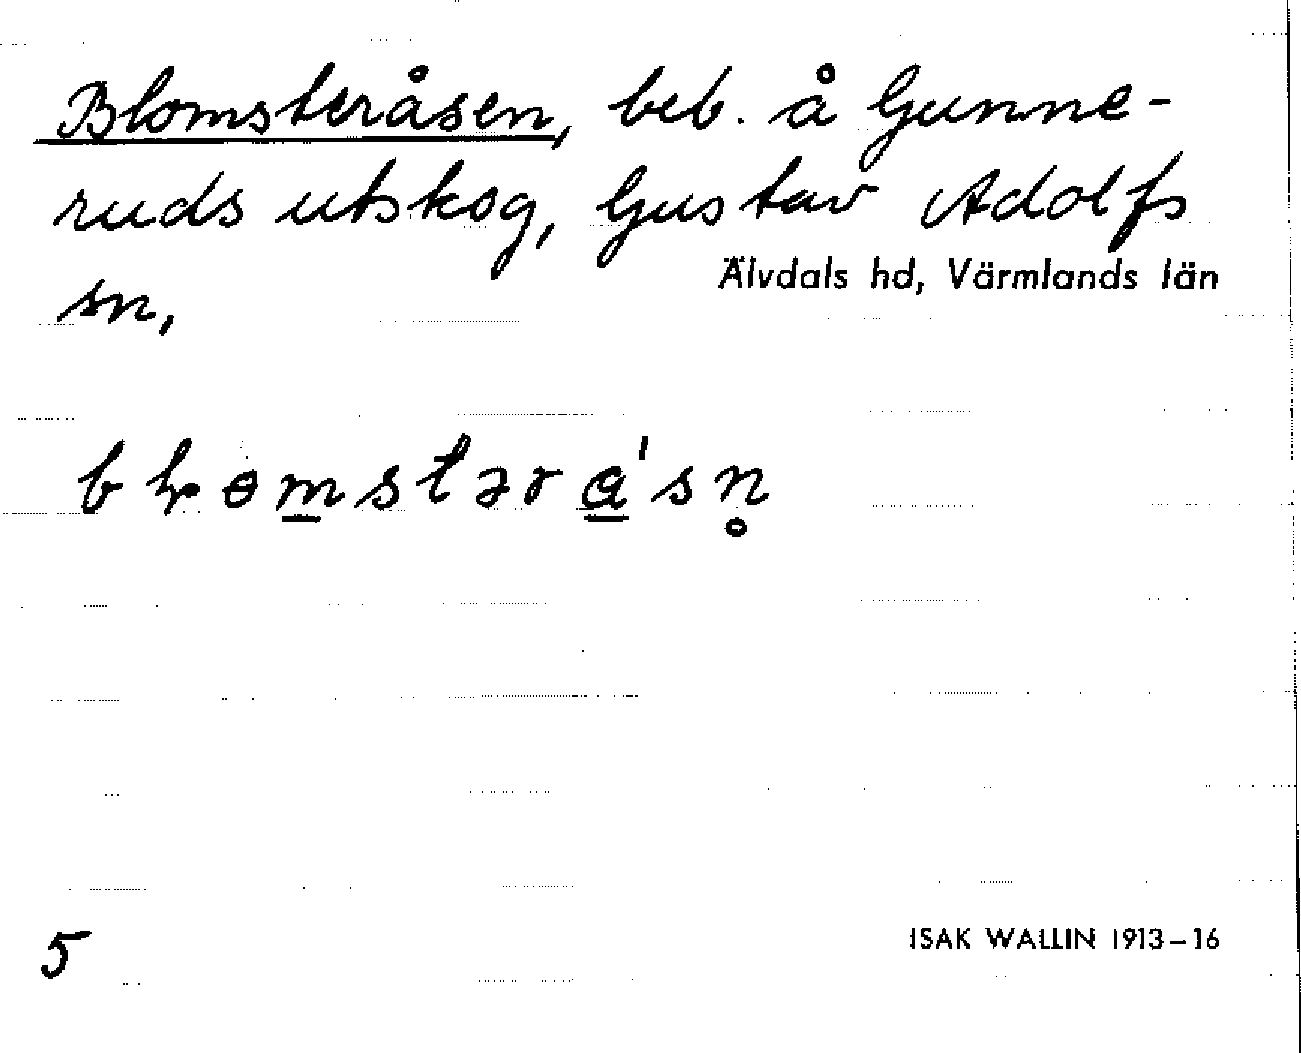 Blomsteråsen, beb. å Gunne-
ruds utskog, Gustav Adolfs
Älvdals hd, Värmlands län
sn,
5
ISAK WALLIN 1913–16